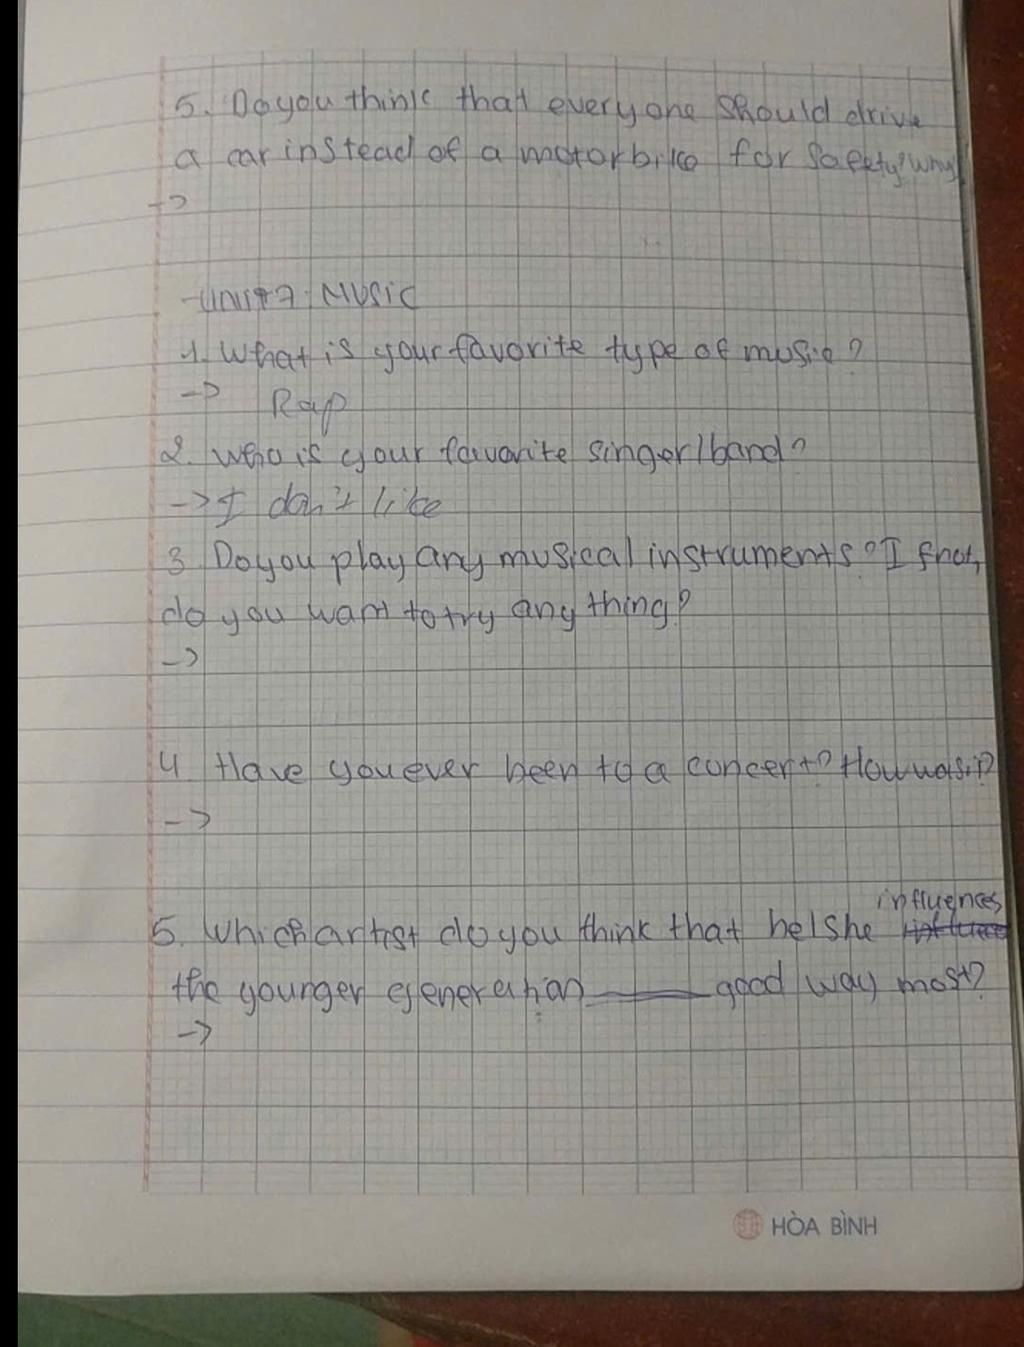 5. Do you think that everyone should drive
a car instead of a motorbike for safety? Why
->
- Unit 7: Music
1. What is your favorite type of music?
-> Rap
2. Who is your favorite singer/band?
-> I don't like
3. Do you play any musical instruments? If not,
do you want to try any thing?
->
4. Have you ever been to a concert? How was it?
->
influences
5. Which artist do you think that he/she
the younger generation good way most?
->
HÒA BÌNH